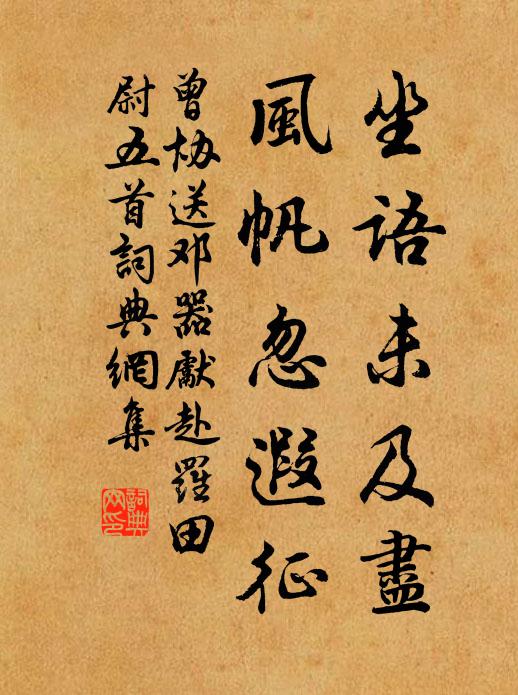 坐語未及盡
風帆忽遐征
曾協送邓器獻赴羅田
尉五首詞典網集
詞典
网印